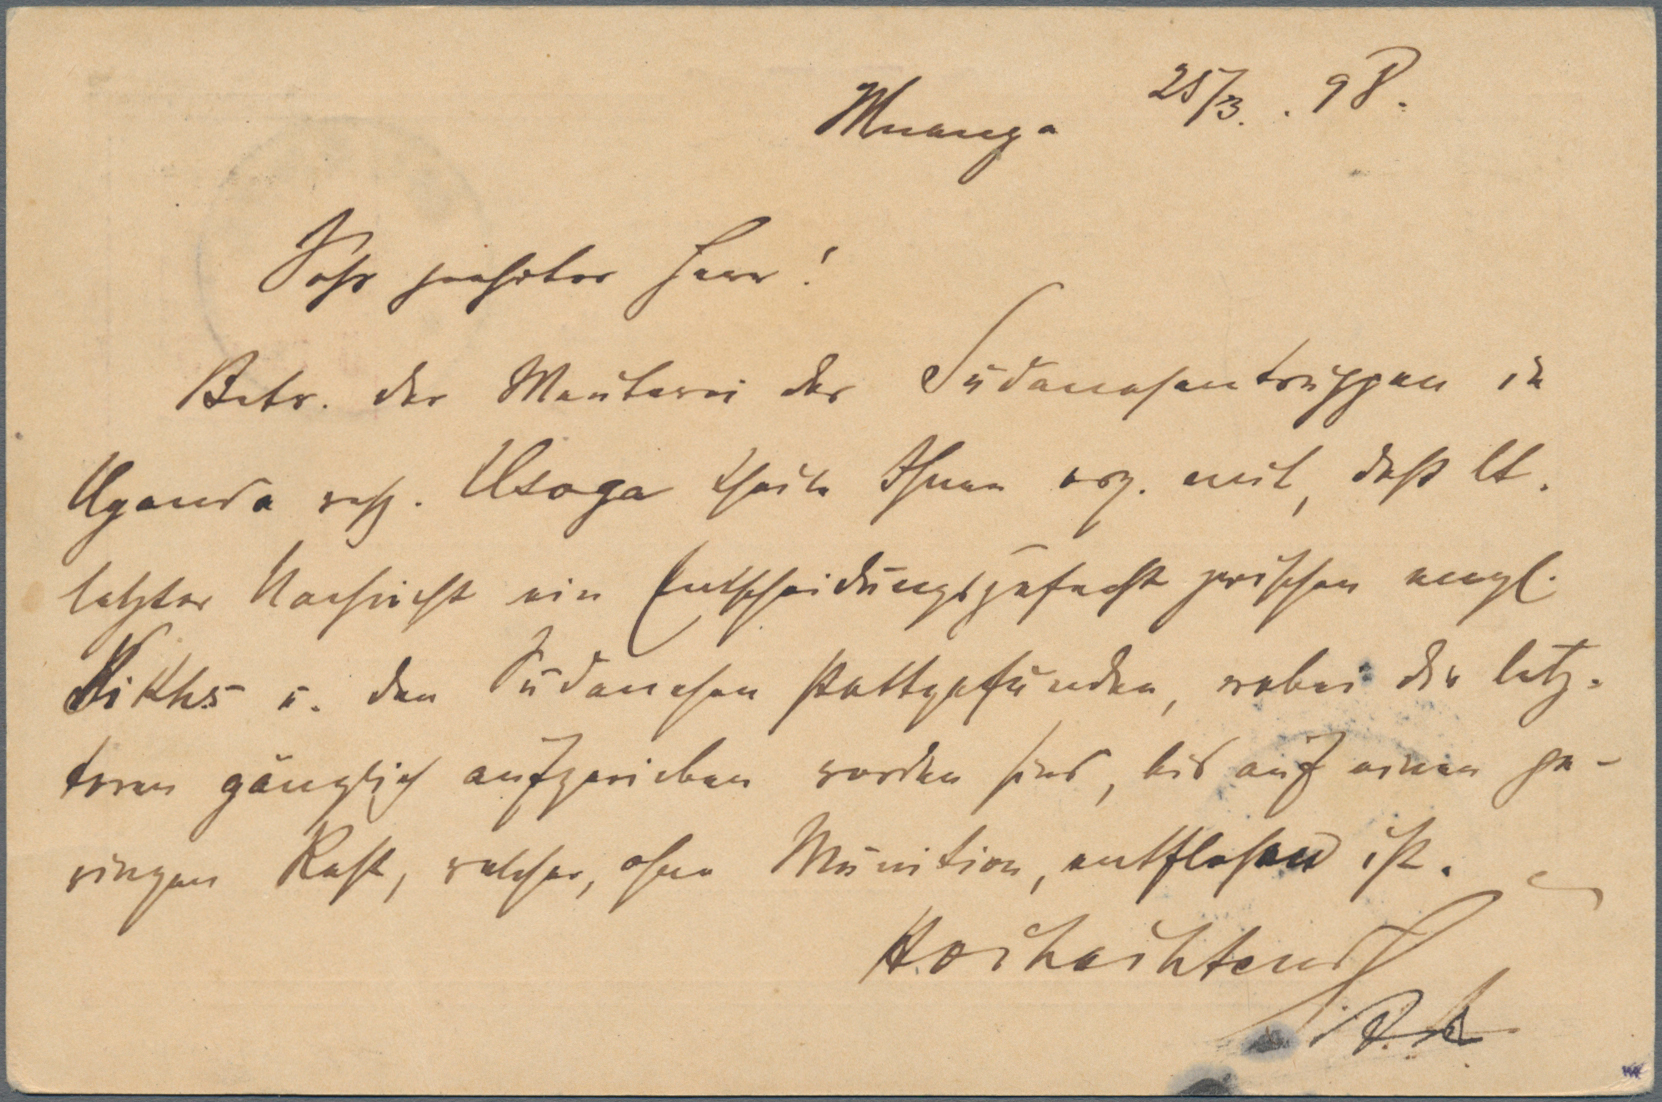 Muanza 25/3. 98.
Sehr geehrter Herr!
Betr. der Meuterei der Sudanesentruppen in
Uganda resp. Usoga theile Ihnen erg. mit, daß lt.
letzter Nachricht ein Entscheidungsgefecht zwischen engl.
Sikhs u. den Sudanesen stattgefunden, wobei die letz-
teren gänzlich aufgerieben worden sind, bis auf einen ge-
ringen Rest, welcher, ohne Munition, entflohen ist.
Hochachtend